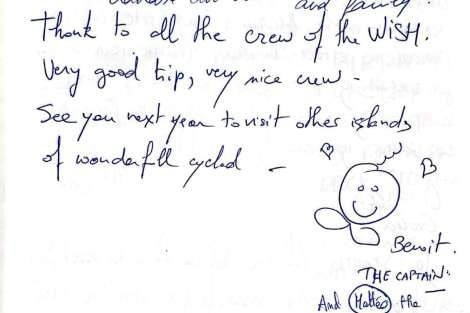 and family.
Thank to all the crew of the WISH.
Very good trip, very nice crew -
See you next year to visit other islands
of wonderfull cyclad -
Benoit.
THE CAPTAIN.
And Mattéo the